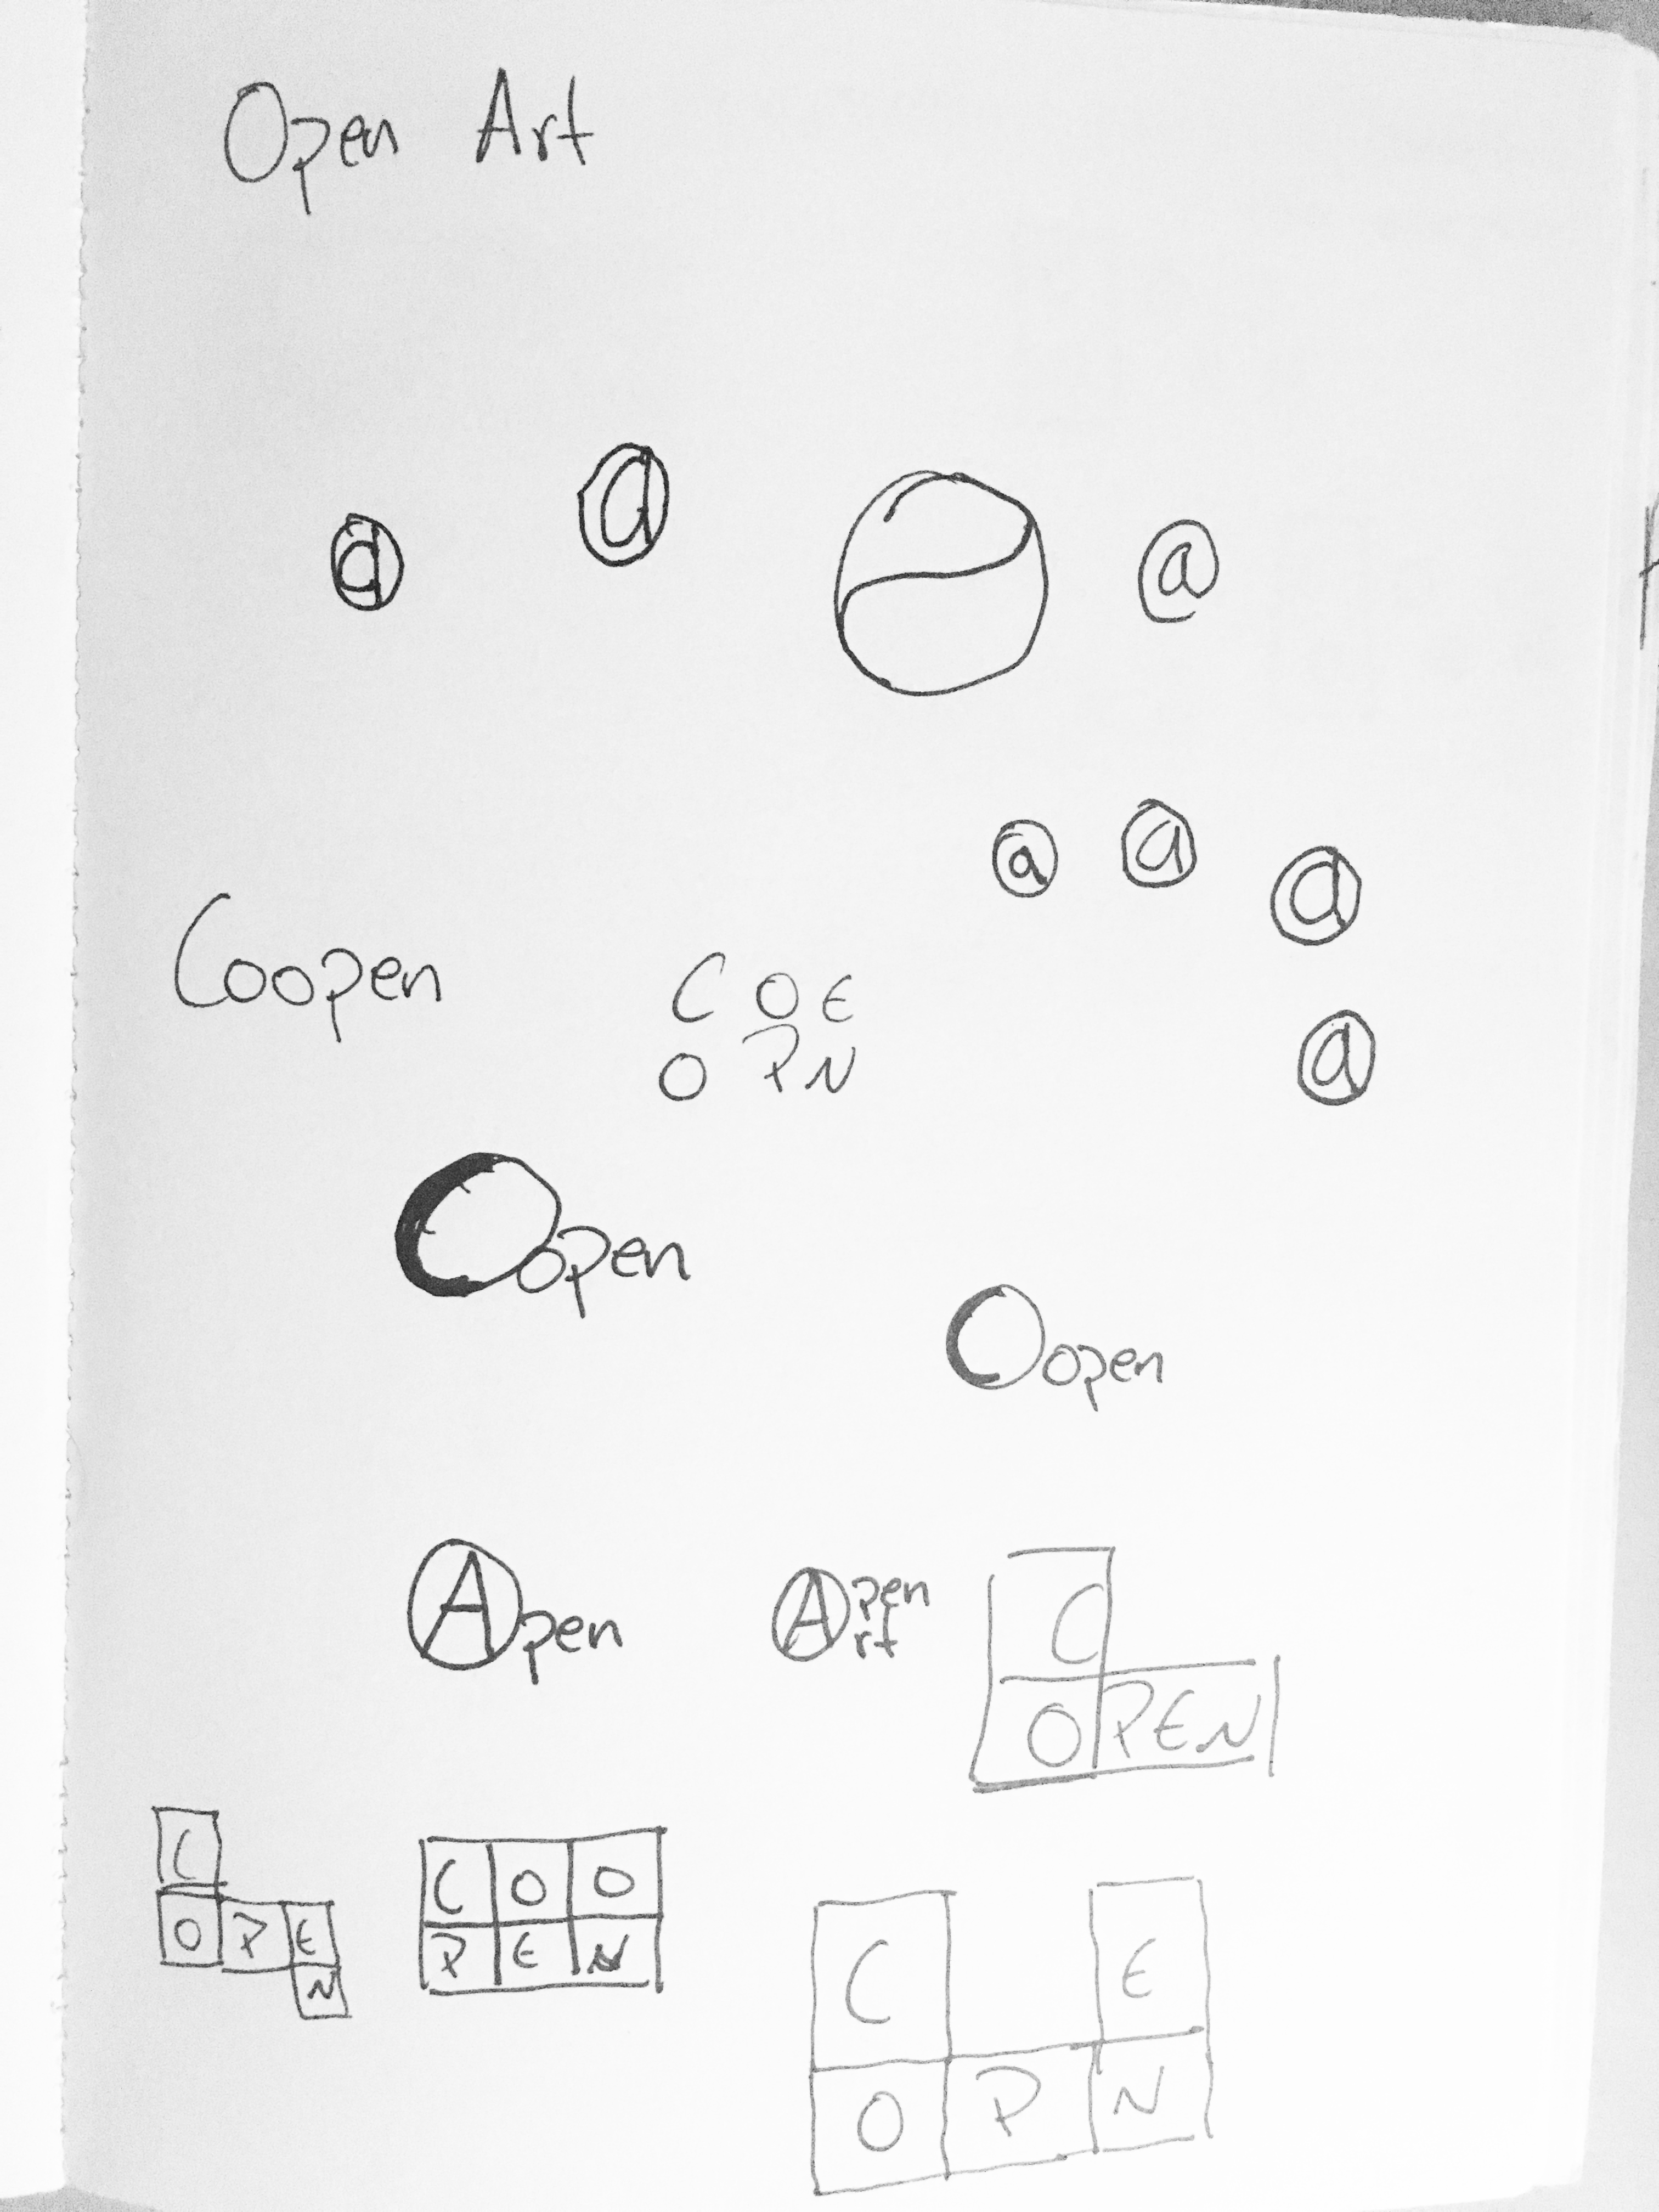 Open Art
a a @
a a a
Coopen
C O E
O P N
a
Copen
Oopen
A pen
A pen
rt
C
O PEN
C
O P E
N
C O O
P E N
C E
O P N